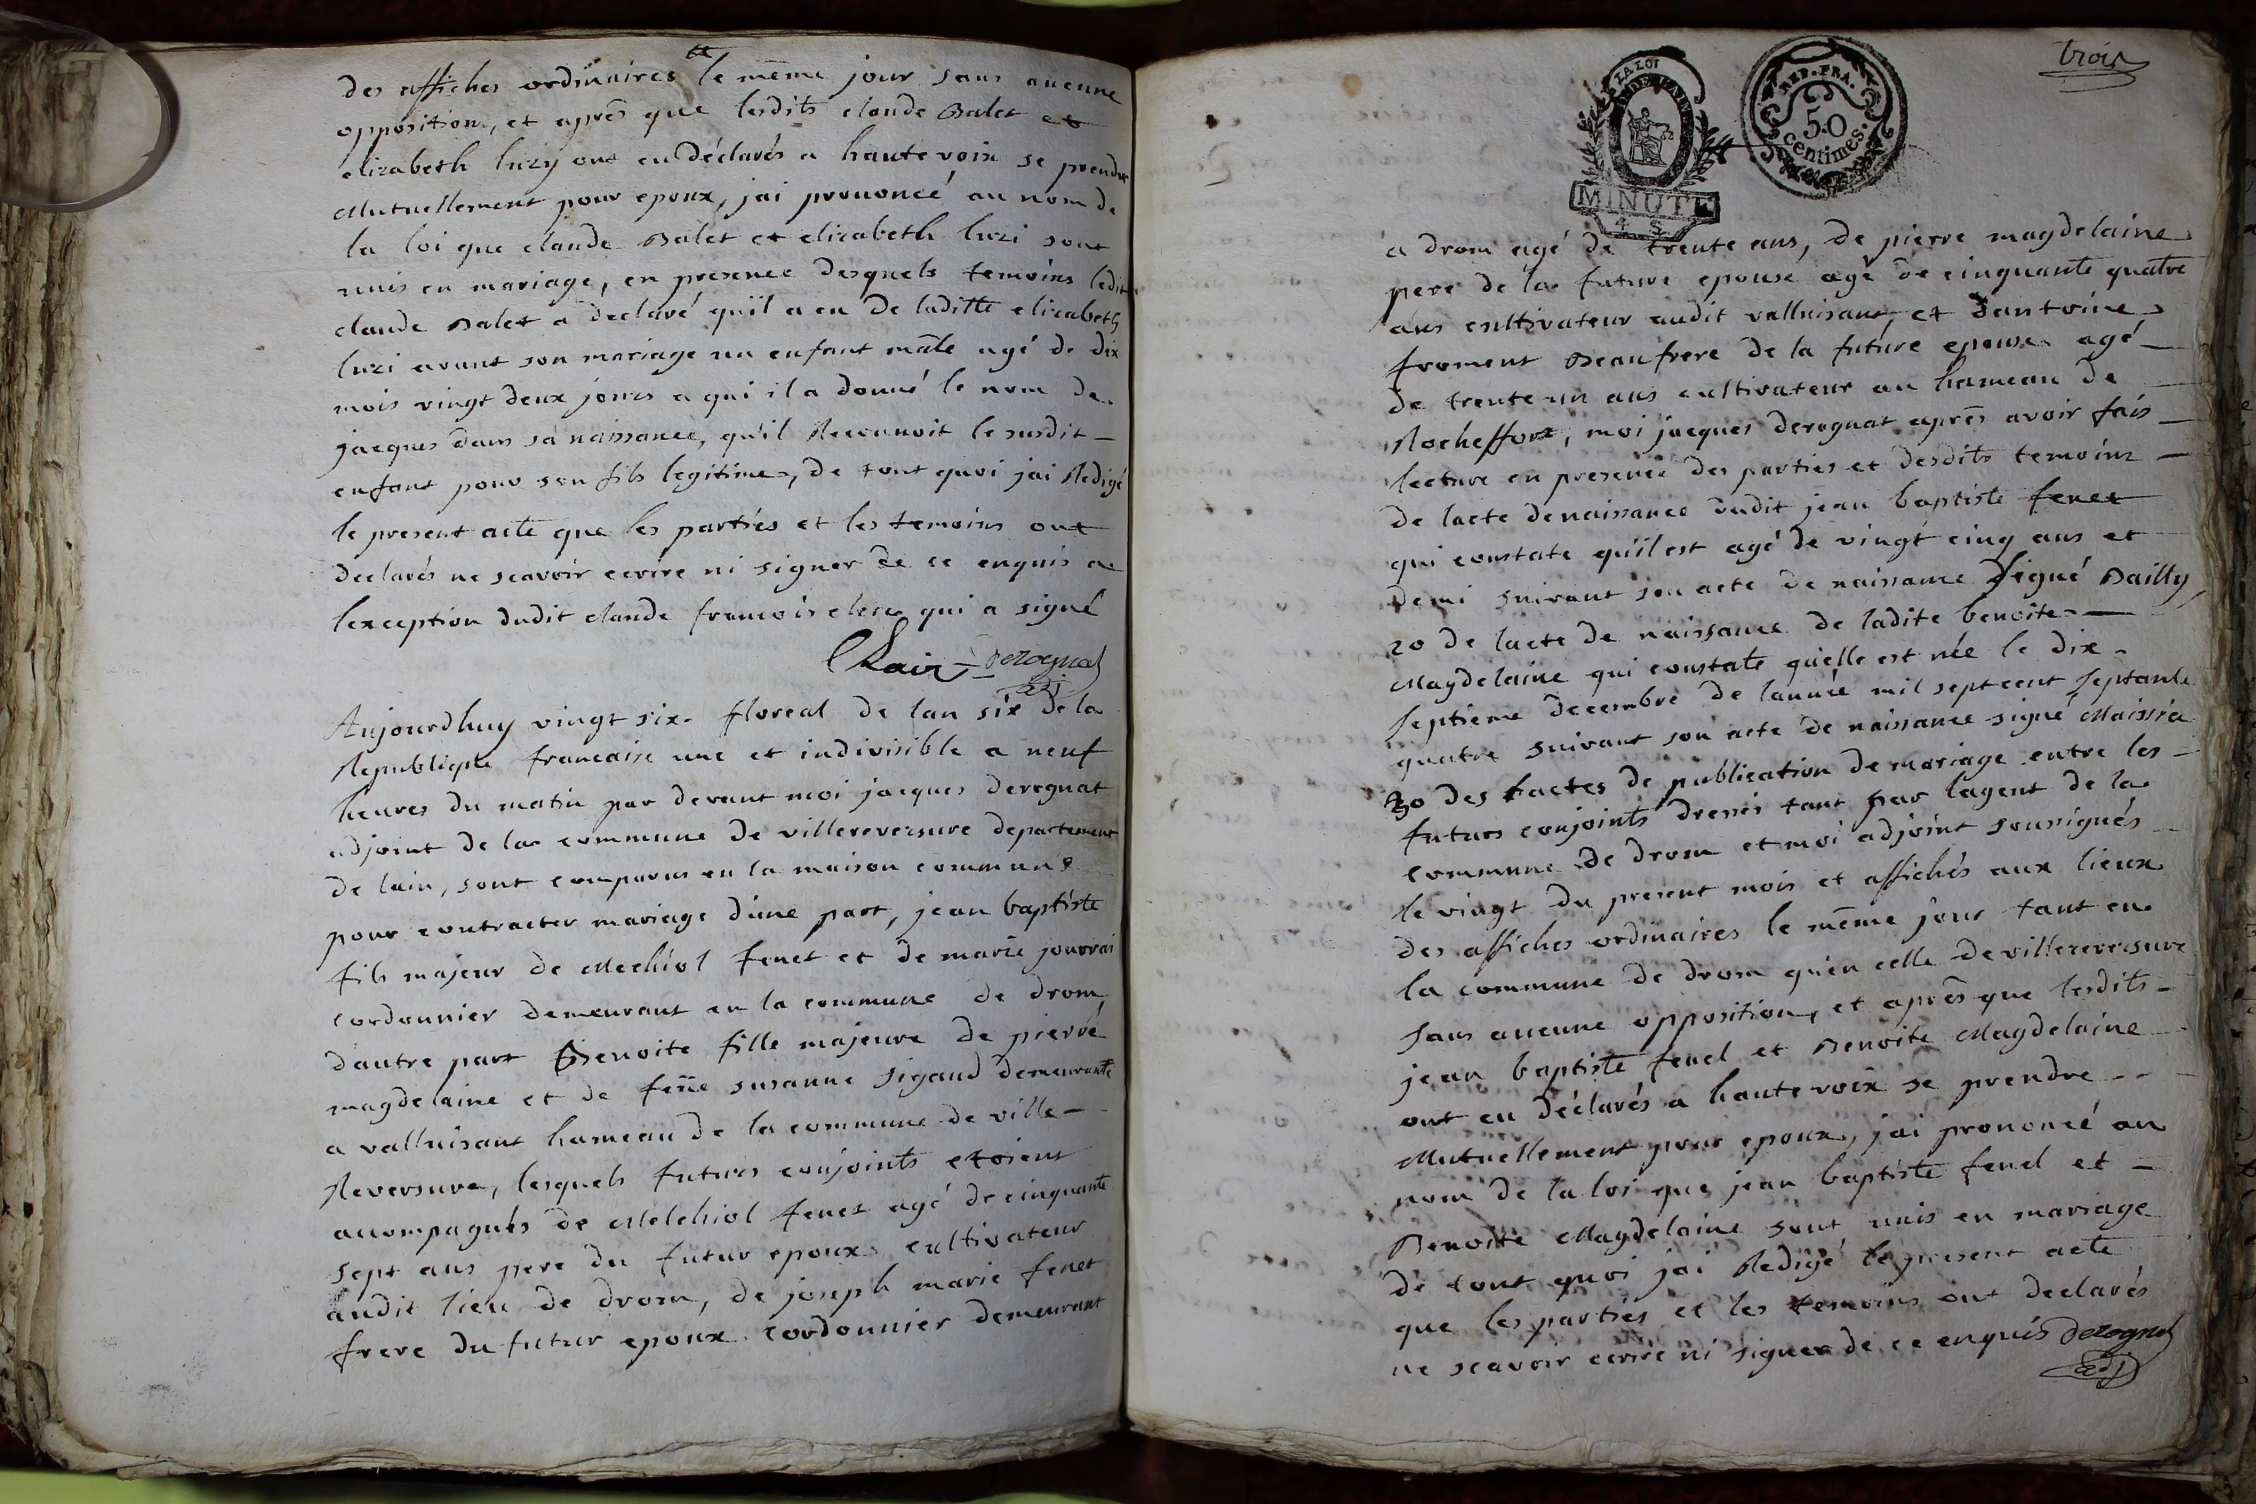 des affiches ordinaires le même jour sans aucune
opposition, et après que lesdits claude Balet et
elizabeth luzy ont eu déclarés a haute voix se prendre
Mutuellement pour epoux, jai prononcé au nom de
la loi que claude Balet et elizabeth luzi sont
unis en mariage, en presence desquels temoins ledit
claude Balet a declaré qu'il a eu de laditte elizabeth
luzi avant son mariage un enfant mâle agé de dix
mois vingt deux jours a qui il a donné le nom de
jacques dans sa naissance, qu'il Reconnoit le susdit
enfant pour son fils legitime, de tout quoi jai Redigé
le present acte que les parties et les temoins ont
declarés ne scavoir ecrire ni signer de ce enquis a
lexception dudit claude francois clerc qui a signé
Derognat
adj
Aujourdhuy vingt six floreal de lan six de la
Republique francaise une et indivisible a neuf
heures du matin par devant moi jacques derognat
adjoint de la commune de villereversure departement
de lain, sont comparus en la maison commune
pour contracter mariage d'une part, jean baptiste
fils majeur de Mechiol fenet et de marie
cordonnier demeurant en la commune de drom,
d'autre part Benoite fille majeure de pierre
magdelaine et de feüe susanne sigaud demeurante
a valluisant hameau de la commune de ville
Reversure, lesquels futurs conjoints etoient
accompagnés de Melchiol fenet agé de cinquante
sept ans pere du futur epoux cultivateur
audit lieu de drom, de joseph marie fenet
frere du futur epoux cordonnier demeurant
trois
LA LOI
REP. FRA.
50
centimes.
MINUTE
a drom agé de trente ans, de pierre magdelaine
pere de la future epouse agé de cinquante quatre
ans cultivateur audit valluisant, et d'antoine
froment Beaufrere de la future epouse agé
de trente un ans cultivateur au hameau de
Rocheffort, moi jacques derognat après avoir fais
lecture en presence des parties et desdits temoins
de lacte de naissance dudit jean baptiste fenet
qui constate qu'il est agé de vingt cinq ans et
demi suivant son acte de naissance signé Bailly,
20 de lacte de naissance de ladite benoite
Magdelaine qui constate qu'elle est née le dix
septieme decembre de lannée mil sept cent septante
quatre suivant son acte de naissance signé
30 des actes de publication de mariage entre les
futurs conjoints dressés tant par lagent de la
commune de drom et moi adjoint soussignés
le vingt du present mois et affichés aux lieux
des affiches ordinaires le même jour tant en
la commune de drom qu'en celle de villereversure
sans aucune opposition, et après que lesdits
jean baptiste fenel et Benoite Magdelaine
ont eu déclarés a haute voix se prendre
Mutuellement pour epoux, jai prononcé au
nom de la loi que jean baptiste fenel et
Benoite Magdelaine sont unis en mariage
de tout quoi jai Redigé le present acte
que les parties et les temoins ont declarés
ne scavoir ecrire ni signer de ce enquis Derognat
adj